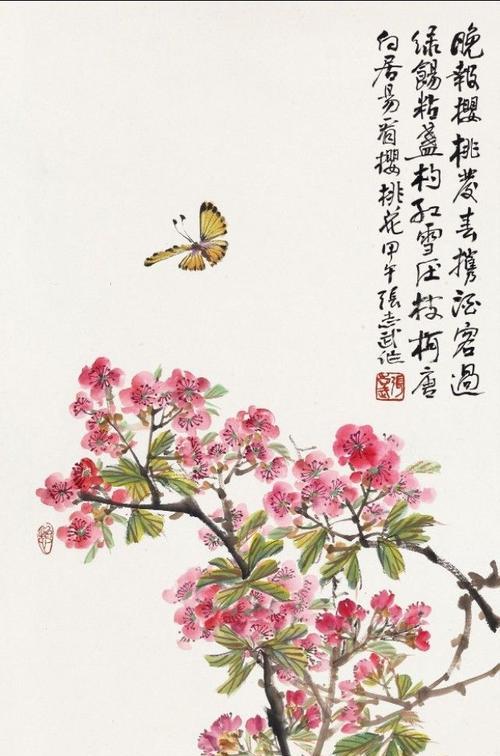 晚報櫻桃發春携酒客過
緑餳粘盞杓紅雪压枝柯唐
白居易看櫻桃花甲午張志武作